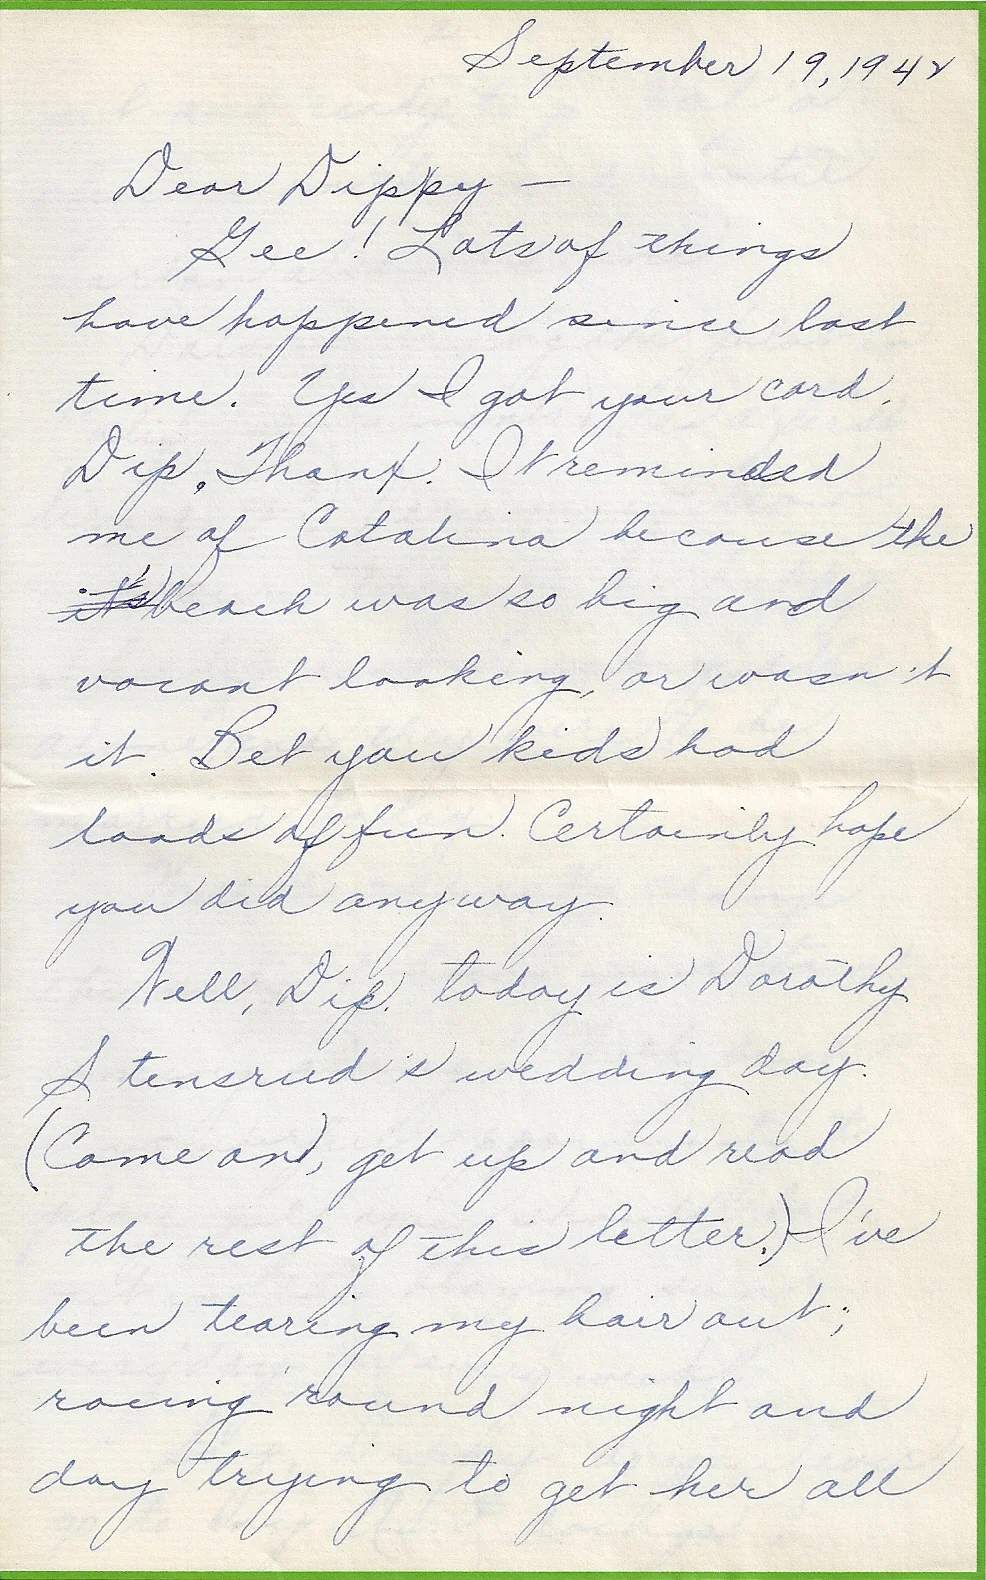 September 19, 1942
Dear Dippy —
Gee! Lots of things
have happened since last
time. Yes I got your card.
Dip, Thanx. It reminded
me of Catalina because the
it's beach was so big and
vacant looking, or wasn't
it. Bet you kids had
loads of fun. Certainly hope
you did anyway.
Well, Dip. today is Dorothy
Stensrud's wedding day.
(Come on, get up and read
the rest of this letter.) I've
been tearing my hair out;
racing 'round night and
day trying to get her all